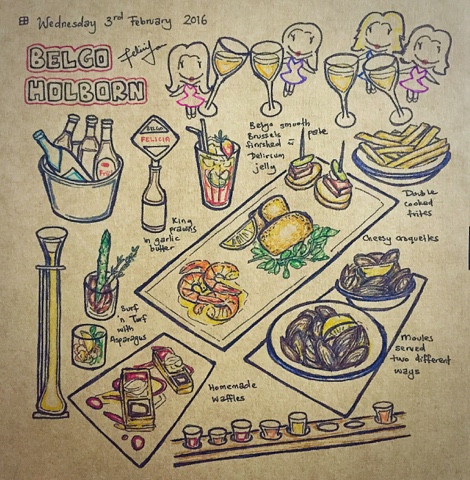 Wednesday 3rd February 2016
BELGO
HOLBORN
Felicia
BELGO
FELICIA
Belgo smooth
Brussels pate
finished
Delirium
jelly
Double
cooked
frites
King
prawns
in garlic
butter
Cheesy croquettes
Surf
'n Turf
with
Asparagus
Moules
served
two different
ways
Homemade
Waffles